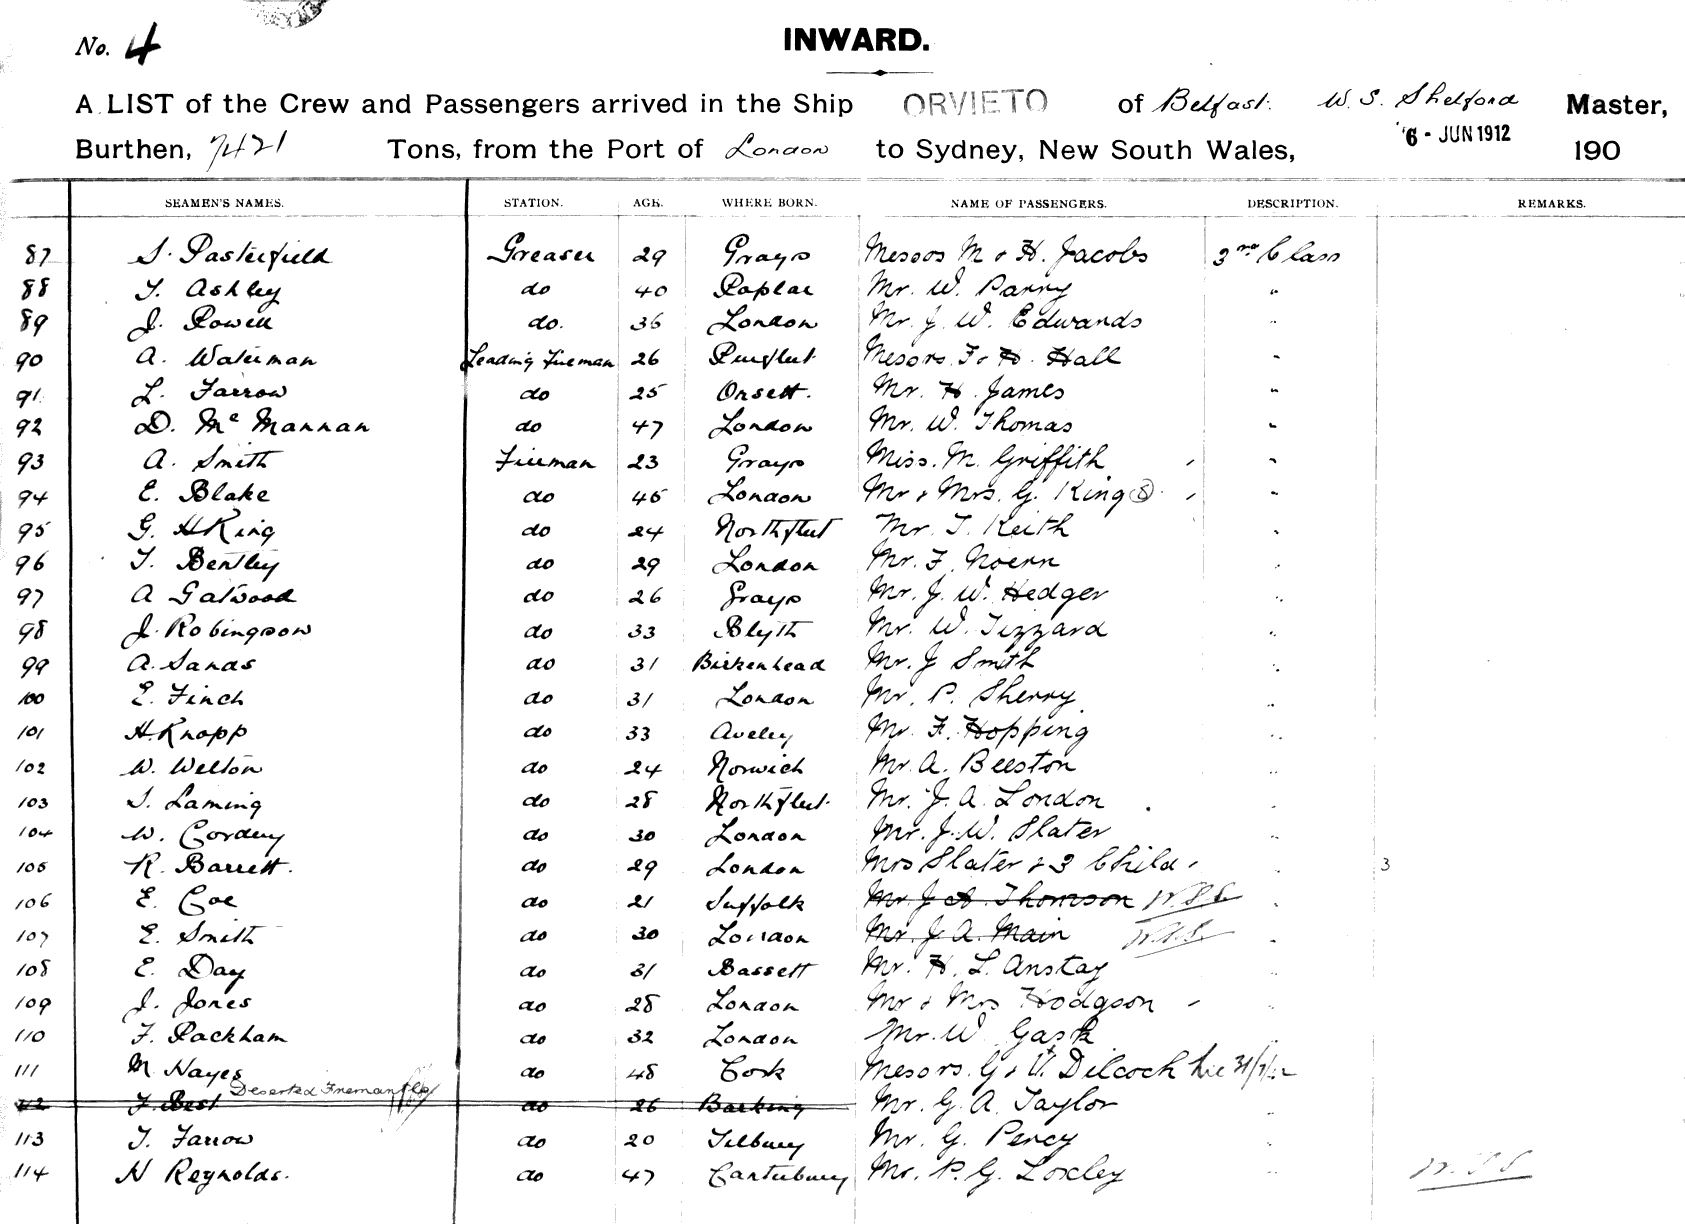 No. 4
INWARD.
A LIST of the Crew and Passengers arrived in the Ship ORVIETO of Belfast. W. S. Shelford Master,
Burthen, 7421 Tons, from the Port of London to Sydney, New South Wales, 6 - JUN 1912 190
SEAMEN'S NAMES. STATION. AGE. WHERE BORN. NAME OF PASSENGERS. DESCRIPTION. REMARKS.
87 S. Pasterfield Greaser 29 Grays Messrs M & H. Jacobs 3rd Class
88 T. Ashley do 40 Poplar Mr. W. Parry "
89 J. Powell do. 36 London Mr. J. W. Edwards "
90 A. Waterman Leading Fireman 26 Purfleet Messrs. F & H. Hall "
91 L. Farrow do 25 Orsett. Mr. H. James "
92 D. McMannan do 47 London Mr. W. Thomas "
93 A. Smith Fireman 23 Grays Miss. M. Griffith "
94 E. Blake do 45 London Mr & Mrs. G. King "
95 G. H King do 24 Northfleet Mr. T. Keith "
96 T. Bentley do 29 London Mr. F. "
97 A Gatwood do 26 Grays Mr. J. W. Hedger "
98 J. Robingson do 33 Blyth Mr. W. Tizzard "
99 A. Sands do 31 Birkenhead Mr. J Smith "
100 E. Finch do 31 London Mr. P. Sherry "
101 H. Knapp do 33 Aveley Mr. F. Hopping "
102 W. Welton do 24 Norwich Mr. A. Beeston "
103 S. Laming do 28 Northfleet. Mr. J. A. London "
104 W. Cordery do 30 London Mr. J. W. Slater "
105 R. Barrett. do 29 London Mrs Slater & 3 Child " 3
106 E. Coe do 21 Suffolk Mr J A. Thomson W.S.S. "
107 E. Smith do 30 London Mr. J. A. Main W.S.S. "
108 E. Day do 31 Bassett Mr. H. L. Anstay "
109 J. Jones do 28 London Mr & Mrs Hodgson "
110 F. Packham do 32 London Mr. W. Gask
111 M Hayes do 48 Cork Messrs. G & V. Dilcock
Deserted Fremantle
112 F. Best do 26 Barking Mr. G. A. Taylor "
113 T. Farrow do 20 Tilbury Mr. G. Percy "
114 H Reynolds. do 47 Canterbury Mr. P. G. Loxley " W.S.S.